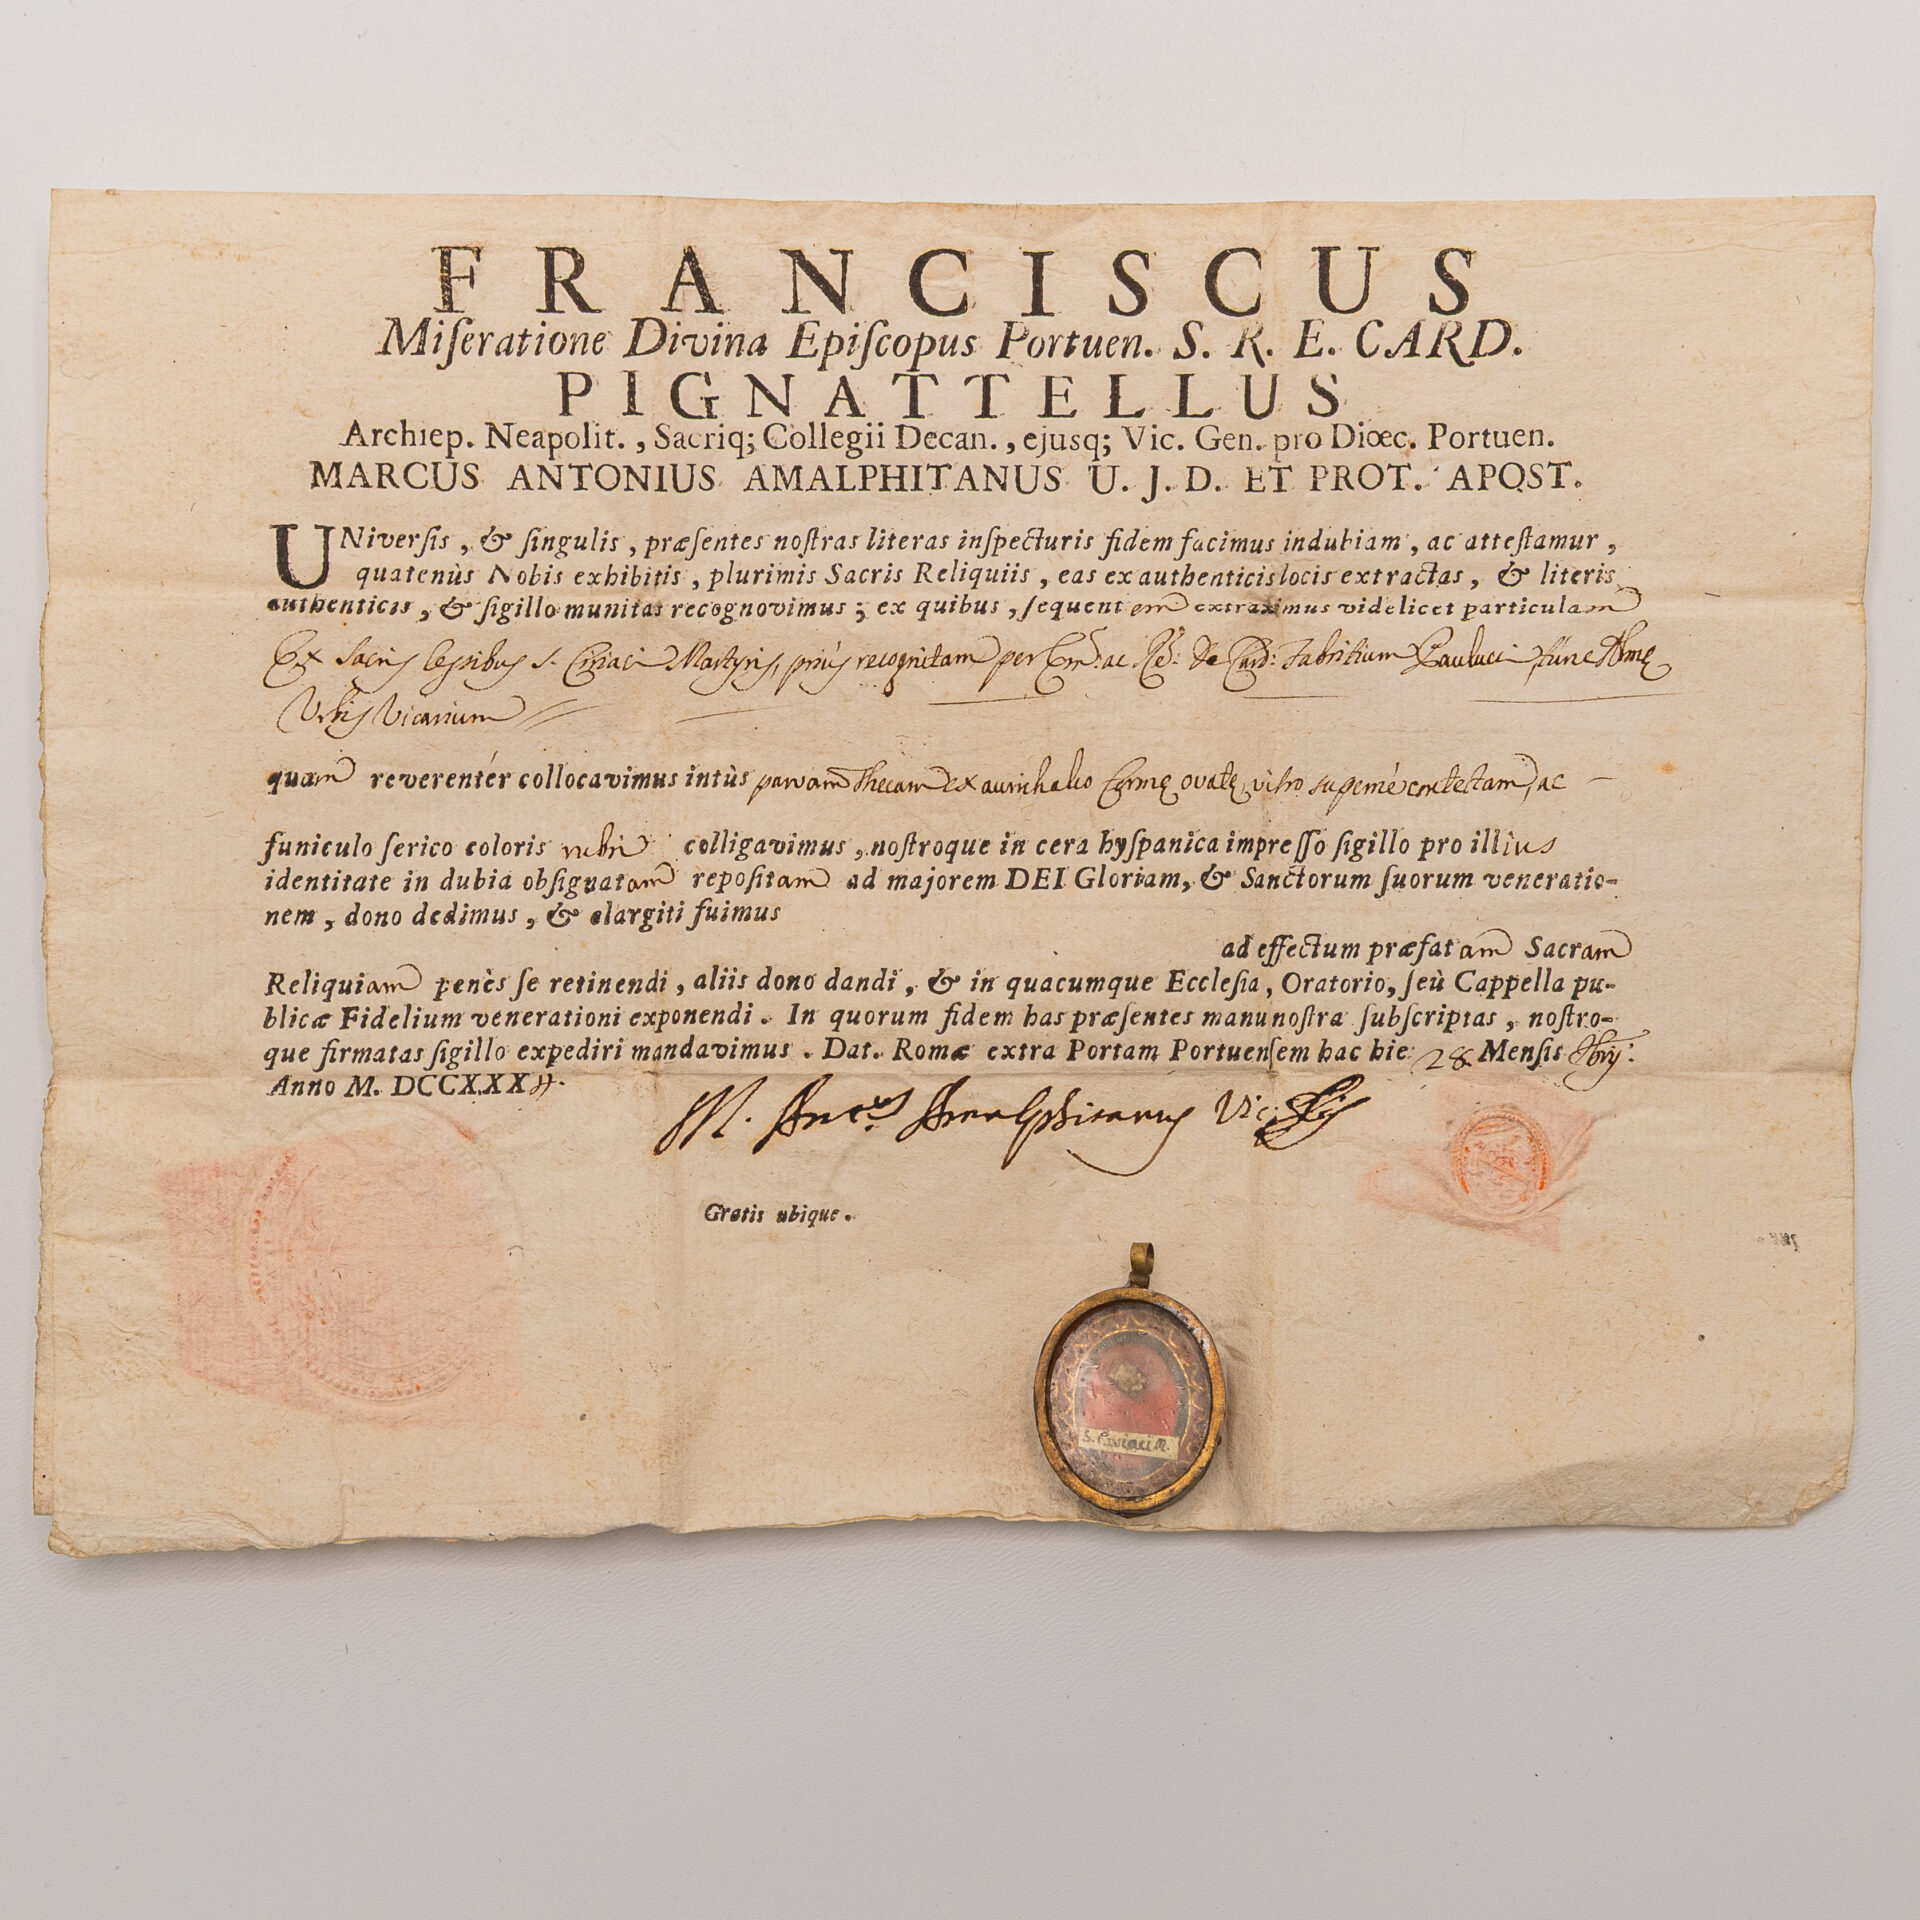 FRANCISCUS
Miſeratione Divina Epiſcopus Portuen. S. R. E. CARD.
PIGNATTELLUS
Archiep. Neapolit. , Sacriq; Collegii Decan. , ejusq; Vic. Gen. pro Diœc. Portuen.
MARCUS ANTONIUS AMALPHITANUS U. J. D. ET PROT. APOST.
UNiverſis , & ſingulis , præſentes noſtras literas inſpecturis fidem facimus indubiam , ac atteſtamur ,
quatenùs Nobis exhibitis , plurimis Sacris Reliquiis , eas ex authenticis locis extractas , & literis
authenticis , & ſigillo munitas recognovimus ; ex quibus , ſequentem extraximus videlicet particulam
Ex Sacris S. Ciriaci Martyris, priùs recognitam per Card: Fabritium Paulucci, tunc Almę
Urbis Vicarium
quam reverentér collocavimus intùs parvam Thecam ex aurichalco formę ovatę, vitro supernè contectam, ac
funiculo ſerico coloris rubri colligavimus , noſtroque in cera hyſpanica impreſſo ſigillo pro illius
identitate in dubia obſignatam repoſitam ad majorem DEI Gloriam, & Sanctorum ſuorum veneratio-
nem , dono dedimus , & elargiti fuimus
ad effectum præfatam Sacram
Reliquiam penès ſe retinendi , aliis dono dandi , & in quacumque Eccleſia, Oratorio, ſeù Cappella pu-
blicæ Fidelium venerationi exponendi . In quorum fidem has præſentes manu noſtra ſubſcriptas , noſtro-
que firmatas ſigillo expediri mandavimus . Dat. Romæ extra Portam Portuenſem hac die 28 Mensis
Anno M. DCCXXX
M. Ant.us Amalphitanus Vic.
Gratis ubique .
S. Ciriaci M.